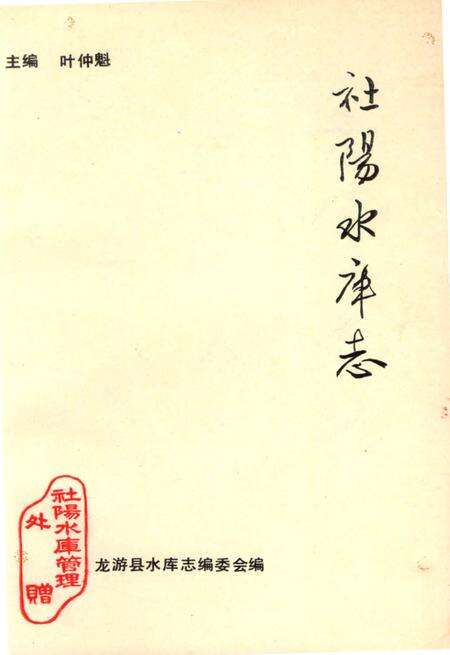 主编 叶仲魁
社陽水库志
社陽水庫管理
处贈
龙游县水库志编委会编